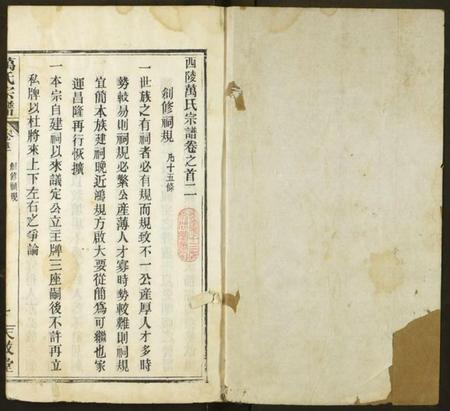 西陵萬氏宗譜卷之首二
創修祠規 凡十五條
一世族之有祠者必有規而規致不一公産厚人才多時
勢較易則祠規必繁公産薄人才寡時勢較難則祠規
宜簡本族建祠晚近鴻規方啟大要從簡為可繼也家
運昌隆再行恢擴
一本宗自建祠以來議定公立王牌三座嗣後不許再立
私牌以杜將來上下左右之爭論
萬氏宗譜
創修祠規
一
天啟堂